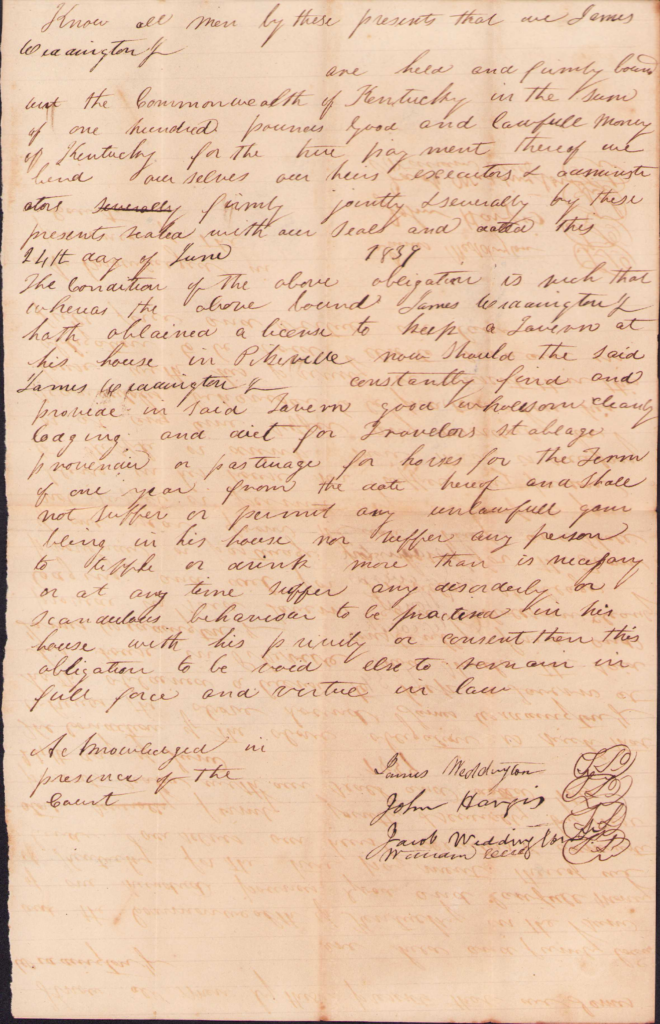 Know all men by these presents that we James
Weddington Jr
are held and firmly bound
unt the Commonwealth of Kentucky in the sum
of one hundred pounds good and lawfull money
of Kentucky for the true payment thereof we
bind our selves our heirs executors & administr
ators severally firmly jointly & severally by these
presents sealed with our seals and dated this
24th day of June 1839
The Condition of the above obligation is such that
whereas the above bound James Weddington Jr
hath obtained a license to keep a Tavern at
his house in Pikeville now Should the said
James Weddington Jr constantly find and
provide in said Tavern good wholesom cleanly
lodging and diet for Travelors stablage
provender or pasturage for horses for the Term
of one year from the date hereof and Shall
not Suffer or permit any unlawfull gam
beling in his house nor suffer any person
to tipple or drink more than is necessary
or at any time suffer any disorderly or
scandulous behaviour to be practised in his
house with his privity or consent then this
obligation to be void else to remain in
full force and virtue in law
Acknowledged in
presence of the
Court
James Weddington
John Hargis
Jacob Weddington
William